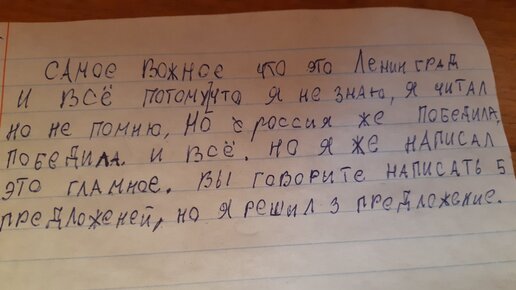 САМОЕ ВОЖНОЕ ЧТО ЭТО ЛЕНИНГРАД
И ВСЁ ПОТОМУ,ЧТО Я НЕ ЗНАЮ, Я ЧИТАЛ
НО НЕ ПОМНЮ, НО РОССИЯ ЖЕ ПОБЕДИЛА,
ПОБЕДИЛА. И ВСЁ. НО Я ЖЕ НАПИСАЛ
ЭТО ГЛАМНОЕ. ВЫ ГОВОРИТЕ НАПИСАТЬ 5
ПРЕДЛОЖЕНЕЙ, НО Я РЕШИЛ 3 ПРЕДЛОЖЕНИЕ.